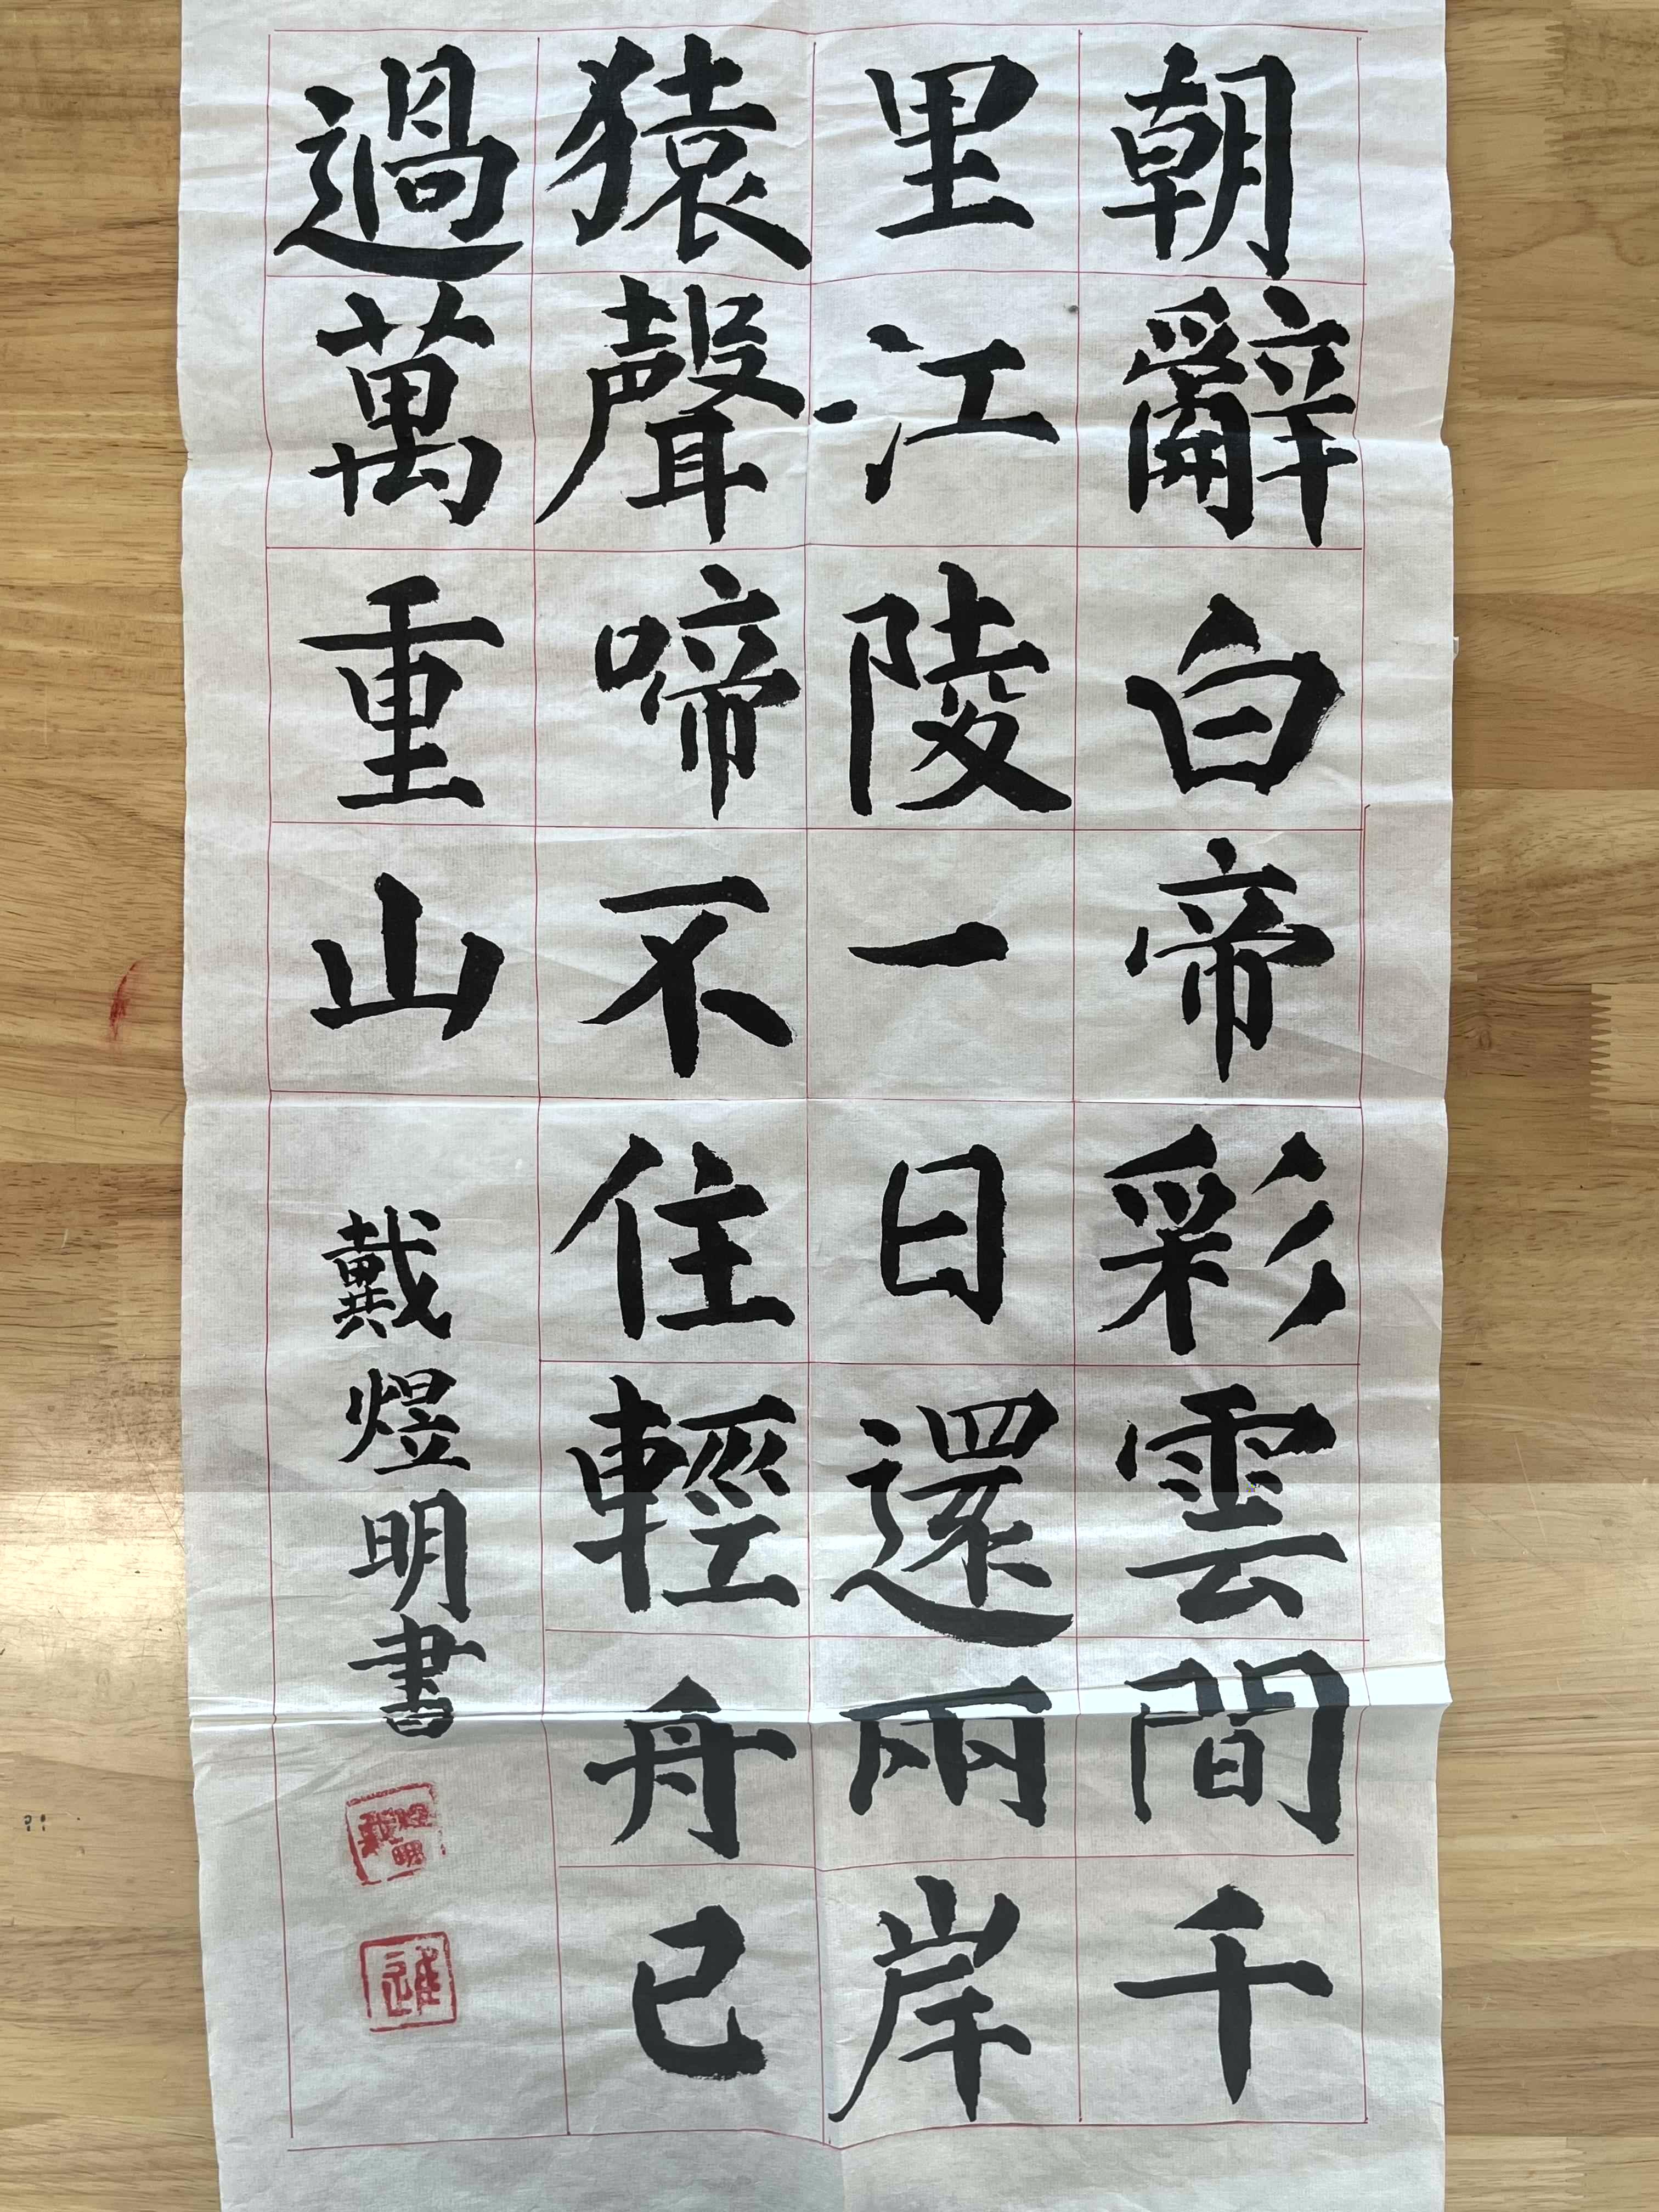 朝辭白帝彩雲間千
里江陵一日還兩岸
猿聲啼不住輕舟已
過萬重山
戴煜明書